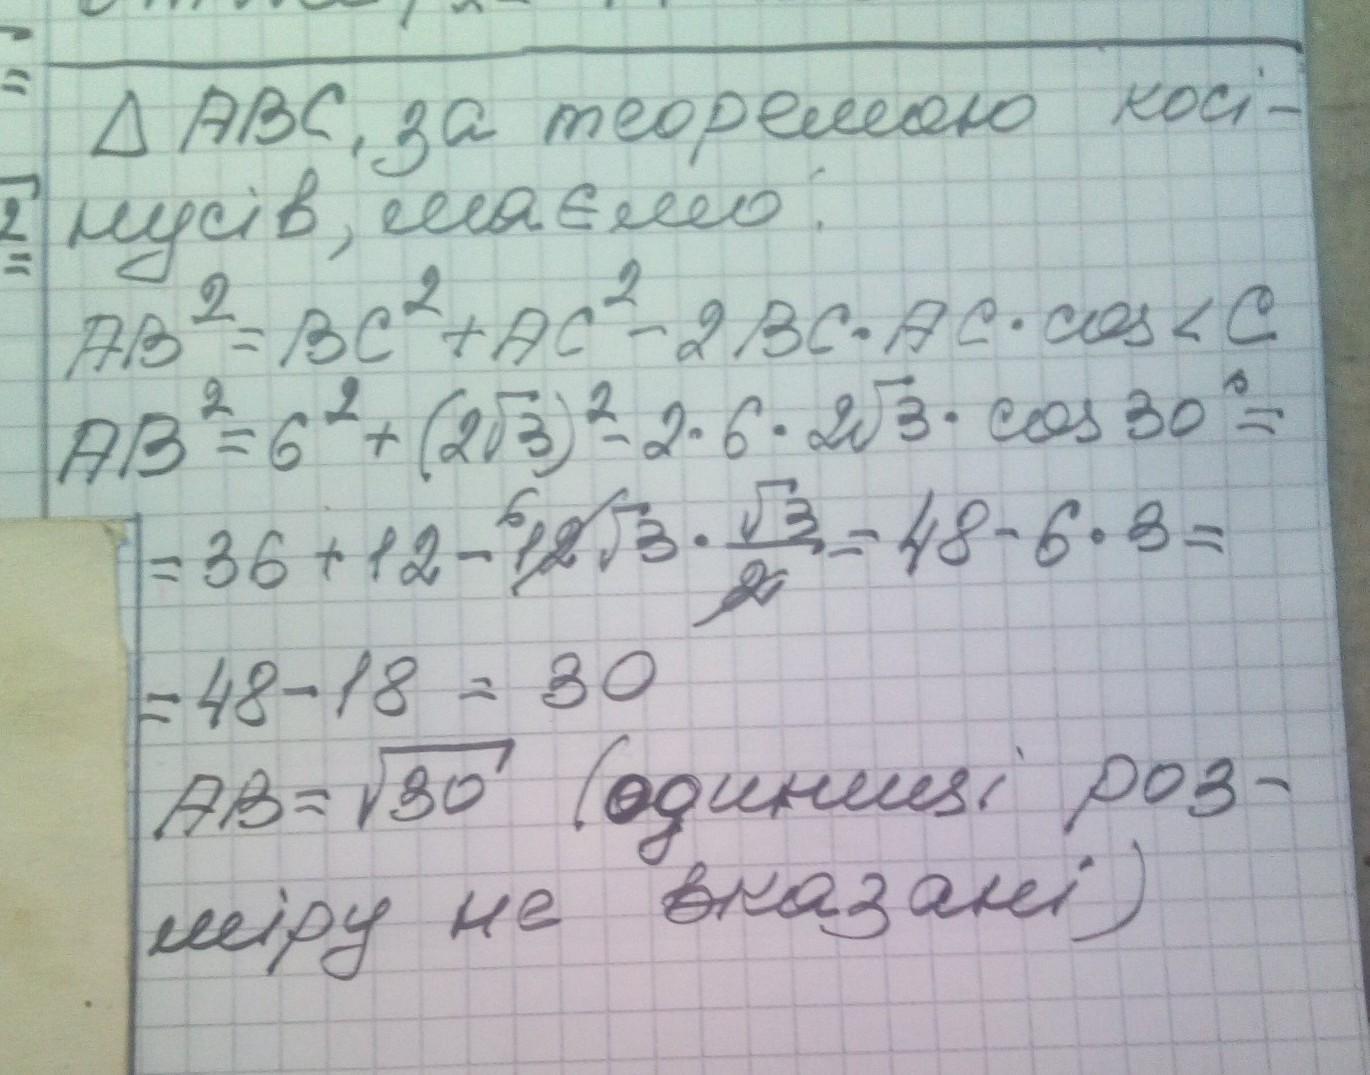 △ ABC, за теоремою косі-
нусів, маємо:
AB² = BC² + AC² - 2BC · AC · cos < C
AB² = 6² + (2√3)² - 2 · 6 · 2√3 · cos 30° =
= 36 + 12 - 12 6 √3 · √3/2 = 48 - 6 · 3 =
= 48 - 18 = 30
AB = √30 (одиниці роз-
міру не вказані)